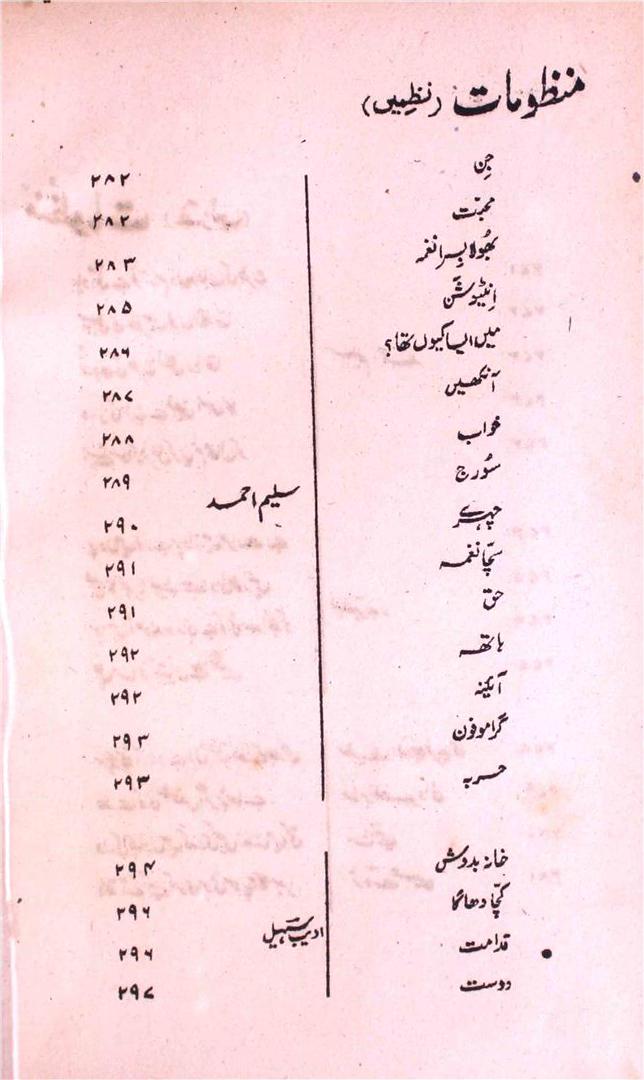 منظومات (نظمیں)
جِن ۲۸۲
محبّت ۲۸۲
بھُولا بِسرا نغمہ ۲۸۳
اِنٹیوشن ۲۸۵
میں ایسا کیوں تھا؟ ۲۸۶
آنکھیں ۲۸۷
خواب ۲۸۸
سُورج ۲۸۹
سلیم احمد
چہرے ۲۹۰
سچّا نغمہ ۲۹۱
حق ۲۹۱
ہاتھ ۲۹۲
آئینہ ۲۹۲
گراموفون ۲۹۳
حربہ ۲۹۳
خانہ بدوش ۲۹۴
کچّا دھاگا ۲۹۶
ادیب سہیل
قدامت ۲۹۶
دوست ۲۹۷